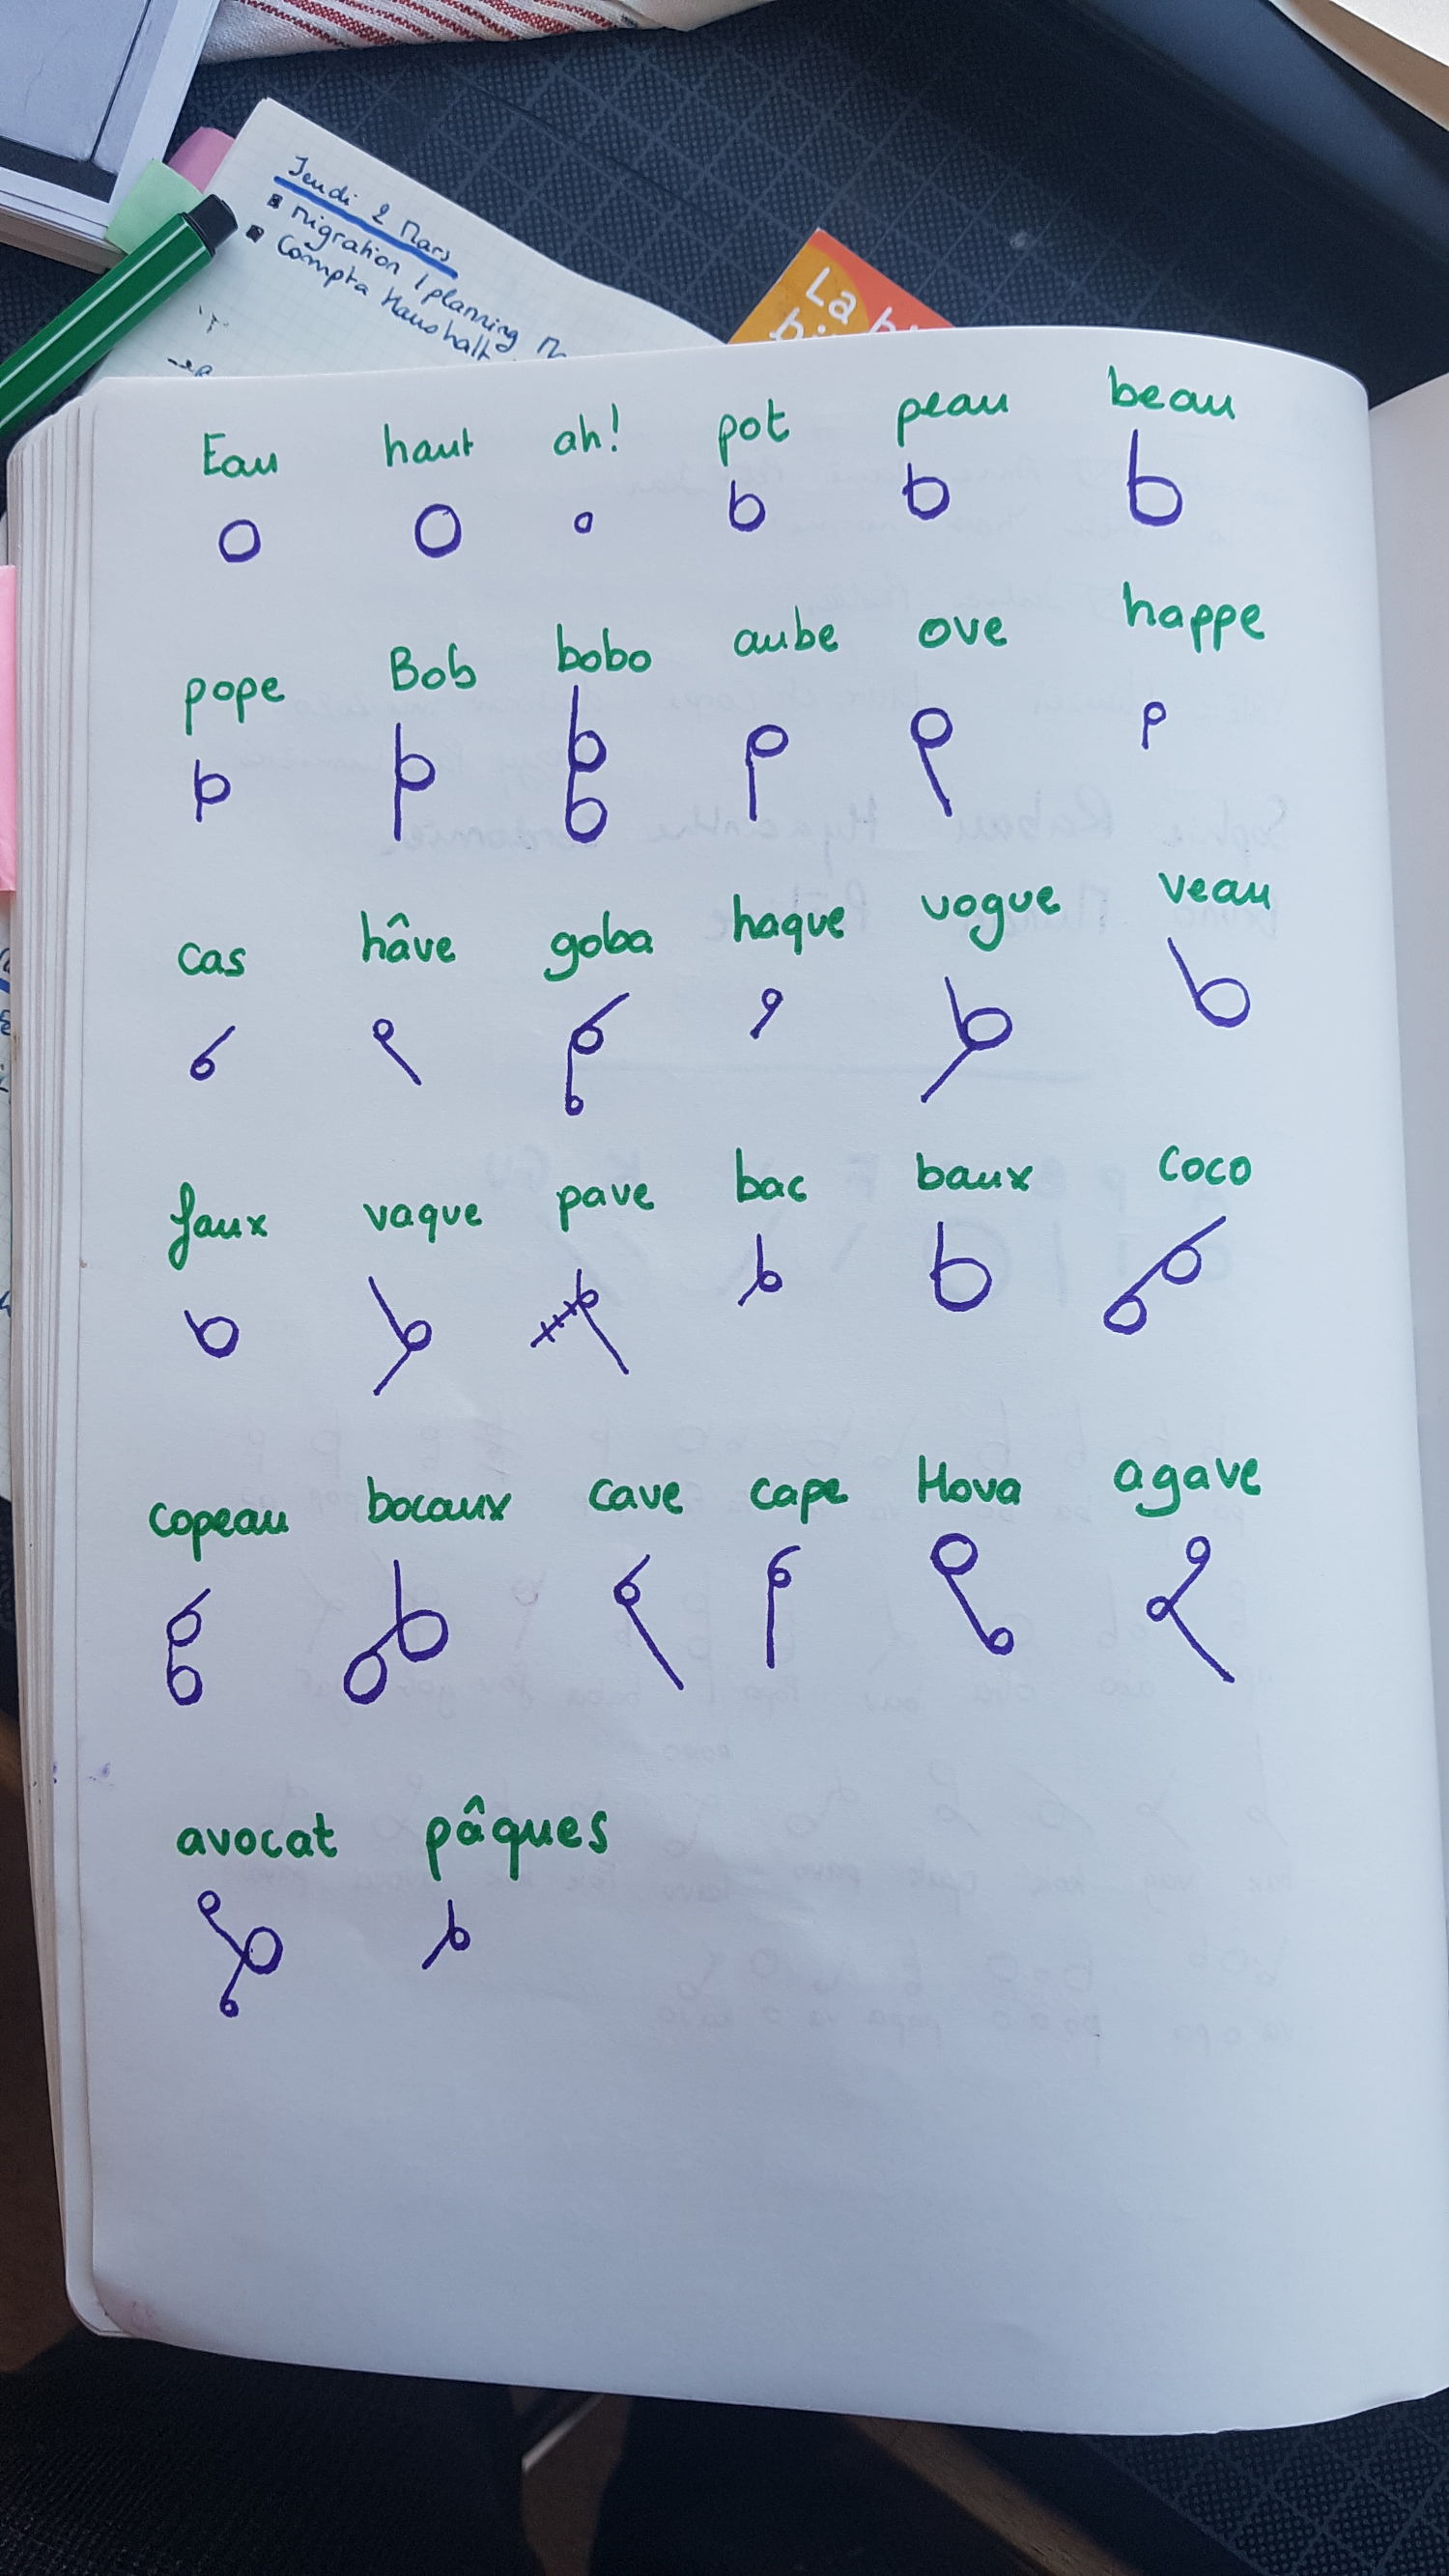 Jeudi 2 Mars
Migration / planning
Compta Haushalt
La
Eau haut ah! pot peau beau
pope Bob bobo aube ove happe
cas hâve goba haque vogue veau
faux vaque pave bac baux coco
copeau bocaux cave cape Hova agave
avocat pâques